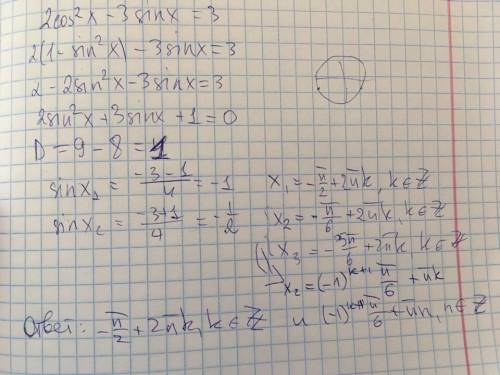 2cos²x - 3sinx = 3
2(1 - sin²x) - 3sinx = 3
2 - 2sin²x - 3sinx = 3
2sin²x + 3sinx + 1 = 0
D = 9 - 8 = 1
sinx₁ = (-3-1)/4 = -1
sinx₂ = (-3+1)/4 = -1/2
x₁ = -π/2 + 2πk, k∈Z
x₂ = -π/6 + 2πk, k∈Z
x₃ = -5π/6 + 2πk, k∈Z
x₂ = (-1)ᵏ⁺¹ π/6 + πk
Ответ: -π/2 + 2πk, k∈Z и (-1)ᵏ⁺¹ π/6 + πn, n∈Z